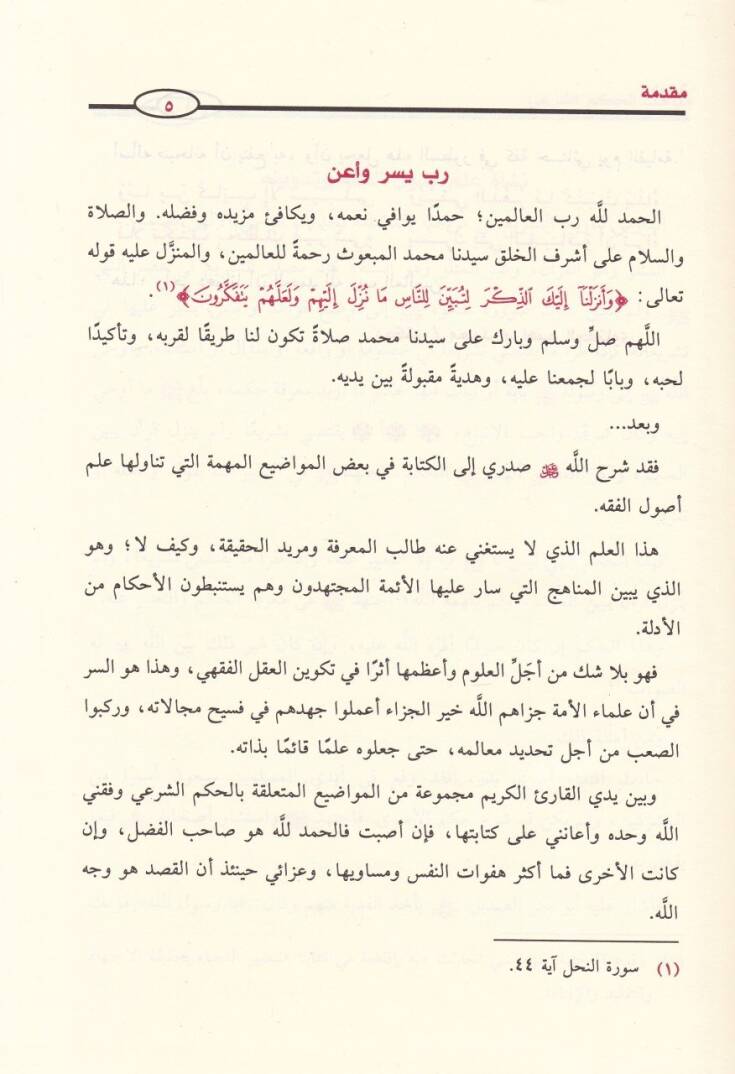 مقدمة
٥
رب يسر وأعن
الحمد لله رب العالمين؛ حمدًا يوافي نعمه، ويكافئ مزيده وفضله. والصلاة
والسلام على أشرف الخلق سيدنا محمد المبعوث رحمةً للعالمين، والمنزَّل عليه قوله
تعالى: ﴿وَأَنزَلْنَآ إِلَيْكَ الذِّكْرَ لِتُبَيِّنَ لِلنَّاسِ مَا نُزِّلَ إِلَيْهِمْ وَلَعَلَّهُمْ يَتَفَكَّرُونَ﴾(١).
اللَّهم صلِّ وسلم وبارك على سيدنا محمد صلاةً تكون لنا طريقًا لقربه، وتأكيدًا
لحبه، وبابًا لجمعنا عليه، وهديةً مقبولةً بين يديه.
وبعد...
فقد شرح اللَّه ﷻ صدري إلى الكتابة في بعض المواضيع المهمة التي تناولها علم
أصول الفقه.
هذا العلم الذي لا يستغني عنه طالب المعرفة ومريد الحقيقة، وكيف لا؛ وهو
الذي يبين المناهج التي سار عليها الأئمة المجتهدون وهم يستنبطون الأحكام من
الأدلة.
فهو بلا شك من أجَلِّ العلوم وأعظمها أثرًا في تكوين العقل الفقهي، وهذا هو السر
في أن علماء الأمة جزاهم اللَّه خير الجزاء أعملوا جهدهم في فسيح مجالاته، وركبوا
الصعب من أجل تحديد معالمه، حتى جعلوه علمًا قائمًا بذاته.
وبين يدي القارئ الكريم مجموعة من المواضيع المتعلقة بالحكم الشرعي وفقني
اللَّه وحده وأعانني على كتابتها، فإن أصبت فالحمد للَّه هو صاحب الفضل، وإن
كانت الأخرى فما أكثر هفوات النفس ومساويها، وعزائي حينئذ أن القصد هو وجه
اللَّه.
(١) سورة النحل آية ٤٤.